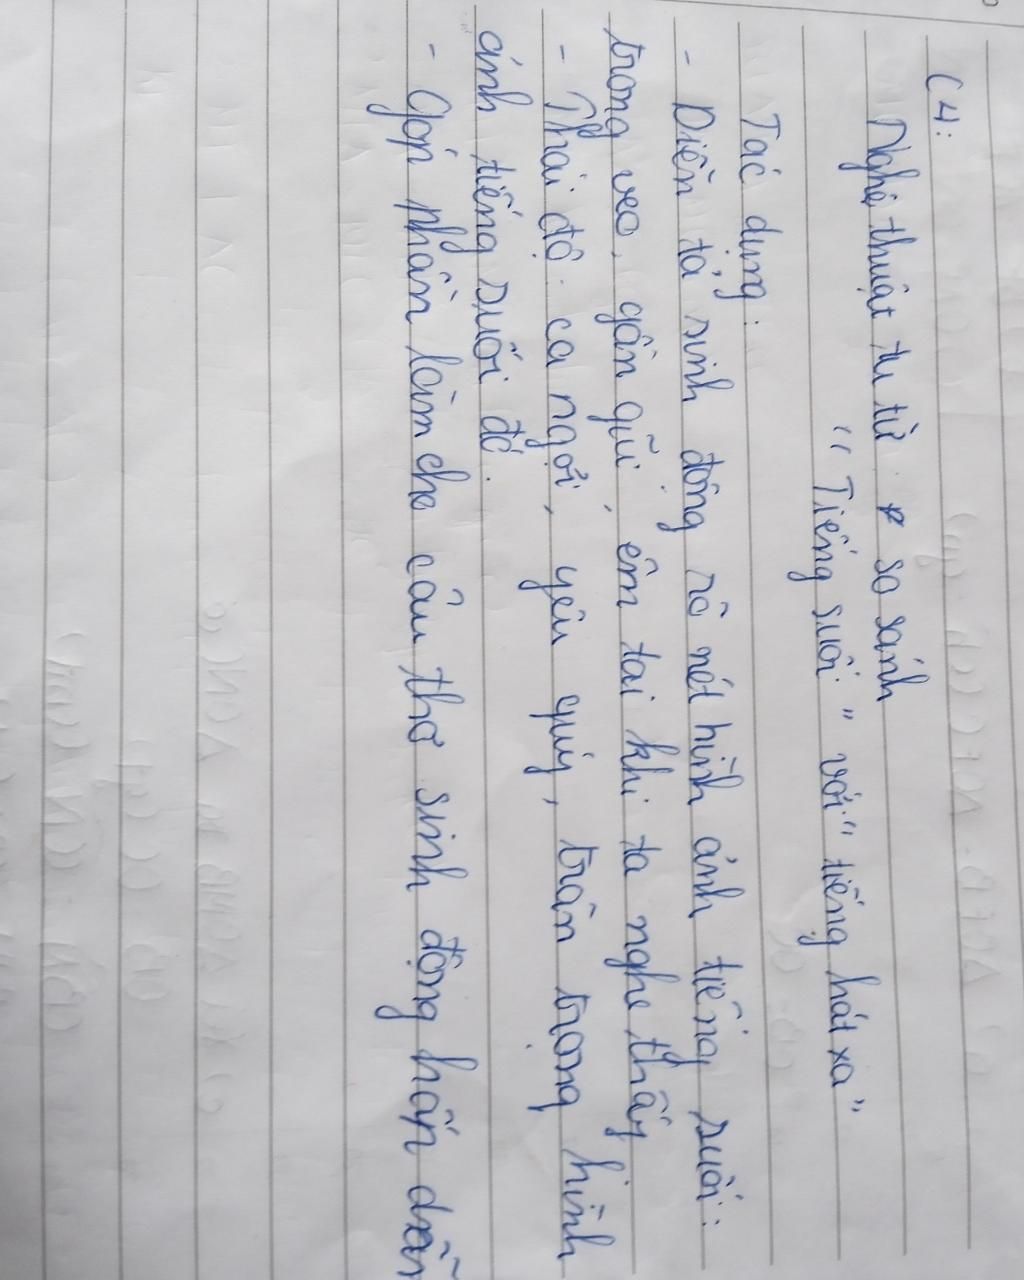 C4:
Nghệ thuật tu từ so sánh
"Tiếng suối" với "tiếng hát xa"
Tác dụng:
- Diễn tả sinh động rõ nét hình ảnh tiếng suối:
trong veo, gần gũi, êm tai khi ta nghe thấy
- Thái độ: ca ngợi, yêu quý, trân trọng hình
ảnh tiếng suối đó.
- Góp phần làm cho câu thơ sinh động hấp dẫn